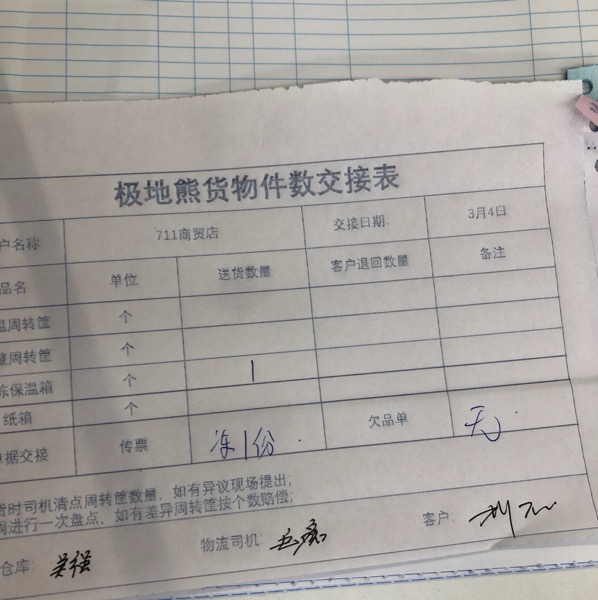 极地熊货物件数交接表
户名称 711商贸店 交接日期: 3月4日
品名 单位 送货数量 客户退回数量 备注
温周转筐 个
周转筐 个
冻保温箱 个 1
纸箱 个
单据交接 传票 冻1份 欠品单 无
货时司机清点周转筐数量，如有异议现场提出；
周进行一次盘点，如有差异周转筐按个数赔偿；
仓库: 吴强 物流司机: 客户: